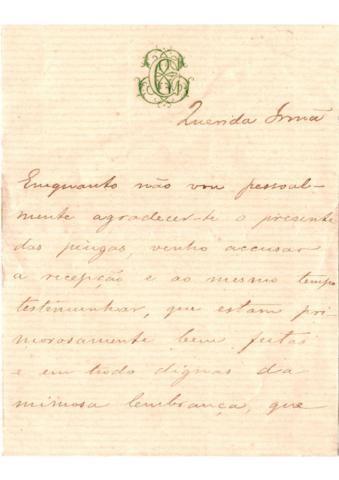 Querida Irmã
Emquanto não vou pessoal-
mente agradecer-te o presente
das piugas, venho accusar
a recepção e ao mesmo tempo
testimunhar, que estam pri-
morosamente bem feitas
e em tudo dignas da
mimosa lembrança, que